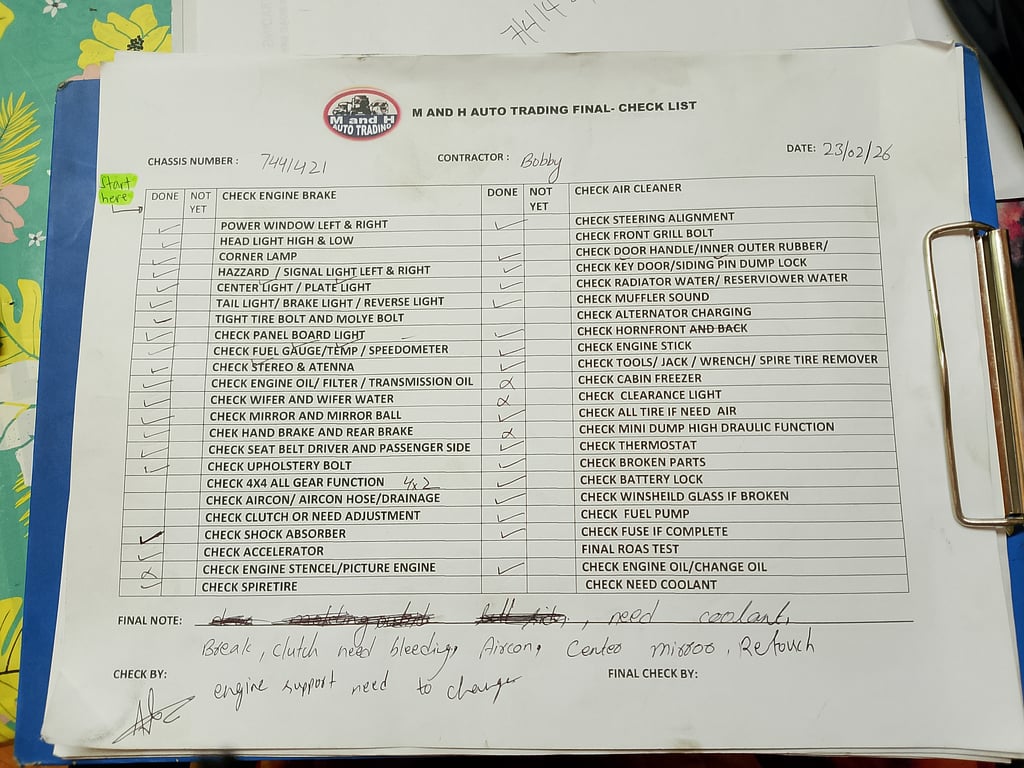 7414
M and H
AUTO TRADING
M AND H AUTO TRADING FINAL- CHECK LIST
CHASSIS NUMBER : 7441421 CONTRACTOR : Bobby DATE: 23/02/26
Start
here
DONE NOT YET CHECK ENGINE BRAKE DONE NOT YET CHECK AIR CLEANER
✓ POWER WINDOW LEFT & RIGHT ✓ CHECK STEERING ALIGNMENT
✓ HEAD LIGHT HIGH & LOW CHECK FRONT GRILL BOLT
✓ CORNER LAMP ✓ CHECK DOOR HANDLE/INNER OUTER RUBBER/
✓ HAZZARD / SIGNAL LIGHT LEFT & RIGHT ✓ CHECK KEY DOOR/SIDING PIN DUMP LOCK
✓ CENTER LIGHT / PLATE LIGHT ✓ CHECK RADIATOR WATER/ RESERVIOWER WATER
✓ TAIL LIGHT/ BRAKE LIGHT / REVERSE LIGHT ✓ CHECK MUFFLER SOUND
✓ TIGHT TIRE BOLT AND MOLYE BOLT CHECK ALTERNATOR CHARGING
✓ CHECK PANEL BOARD LIGHT ✓ CHECK HORNFRONT AND BACK
✓ CHECK FUEL GAUGE/TEMP / SPEEDOMETER ✓ CHECK ENGINE STICK
✓ CHECK STEREO & ATENNA ✓ CHECK TOOLS/ JACK / WRENCH/ SPIRE TIRE REMOVER
✓ CHECK ENGINE OIL/ FILTER / TRANSMISSION OIL x CHECK CABIN FREEZER
✓ CHECK WIFER AND WIFER WATER x CHECK CLEARANCE LIGHT
✓ CHECK MIRROR AND MIRROR BALL ✓ CHECK ALL TIRE IF NEED AIR
✓ CHEK HAND BRAKE AND REAR BRAKE x CHECK MINI DUMP HIGH DRAULIC FUNCTION
✓ CHECK SEAT BELT DRIVER AND PASSENGER SIDE ✓ CHECK THERMOSTAT
✓ CHECK UPHOLSTERY BOLT ✓ CHECK BROKEN PARTS
CHECK 4X4 ALL GEAR FUNCTION 4x2 ✓ CHECK BATTERY LOCK
CHECK AIRCON/ AIRCON HOSE/DRAINAGE ✓ CHECK WINSHEILD GLASS IF BROKEN
CHECK CLUTCH OR NEED ADJUSTMENT ✓ CHECK FUEL PUMP
✓ CHECK SHOCK ABSORBER ✓ CHECK FUSE IF COMPLETE
✓ CHECK ACCELERATOR FINAL ROAS TEST
x CHECK ENGINE STENCEL/PICTURE ENGINE ✓ CHECK ENGINE OIL/CHANGE OIL
✓ CHECK SPIRETIRE CHECK NEED COOLANT
FINAL NOTE: , need coolant,
Break, Clutch need bleeding, Aircon, Center mirror, Retouch
engine support need to change
CHECK BY: FINAL CHECK BY: